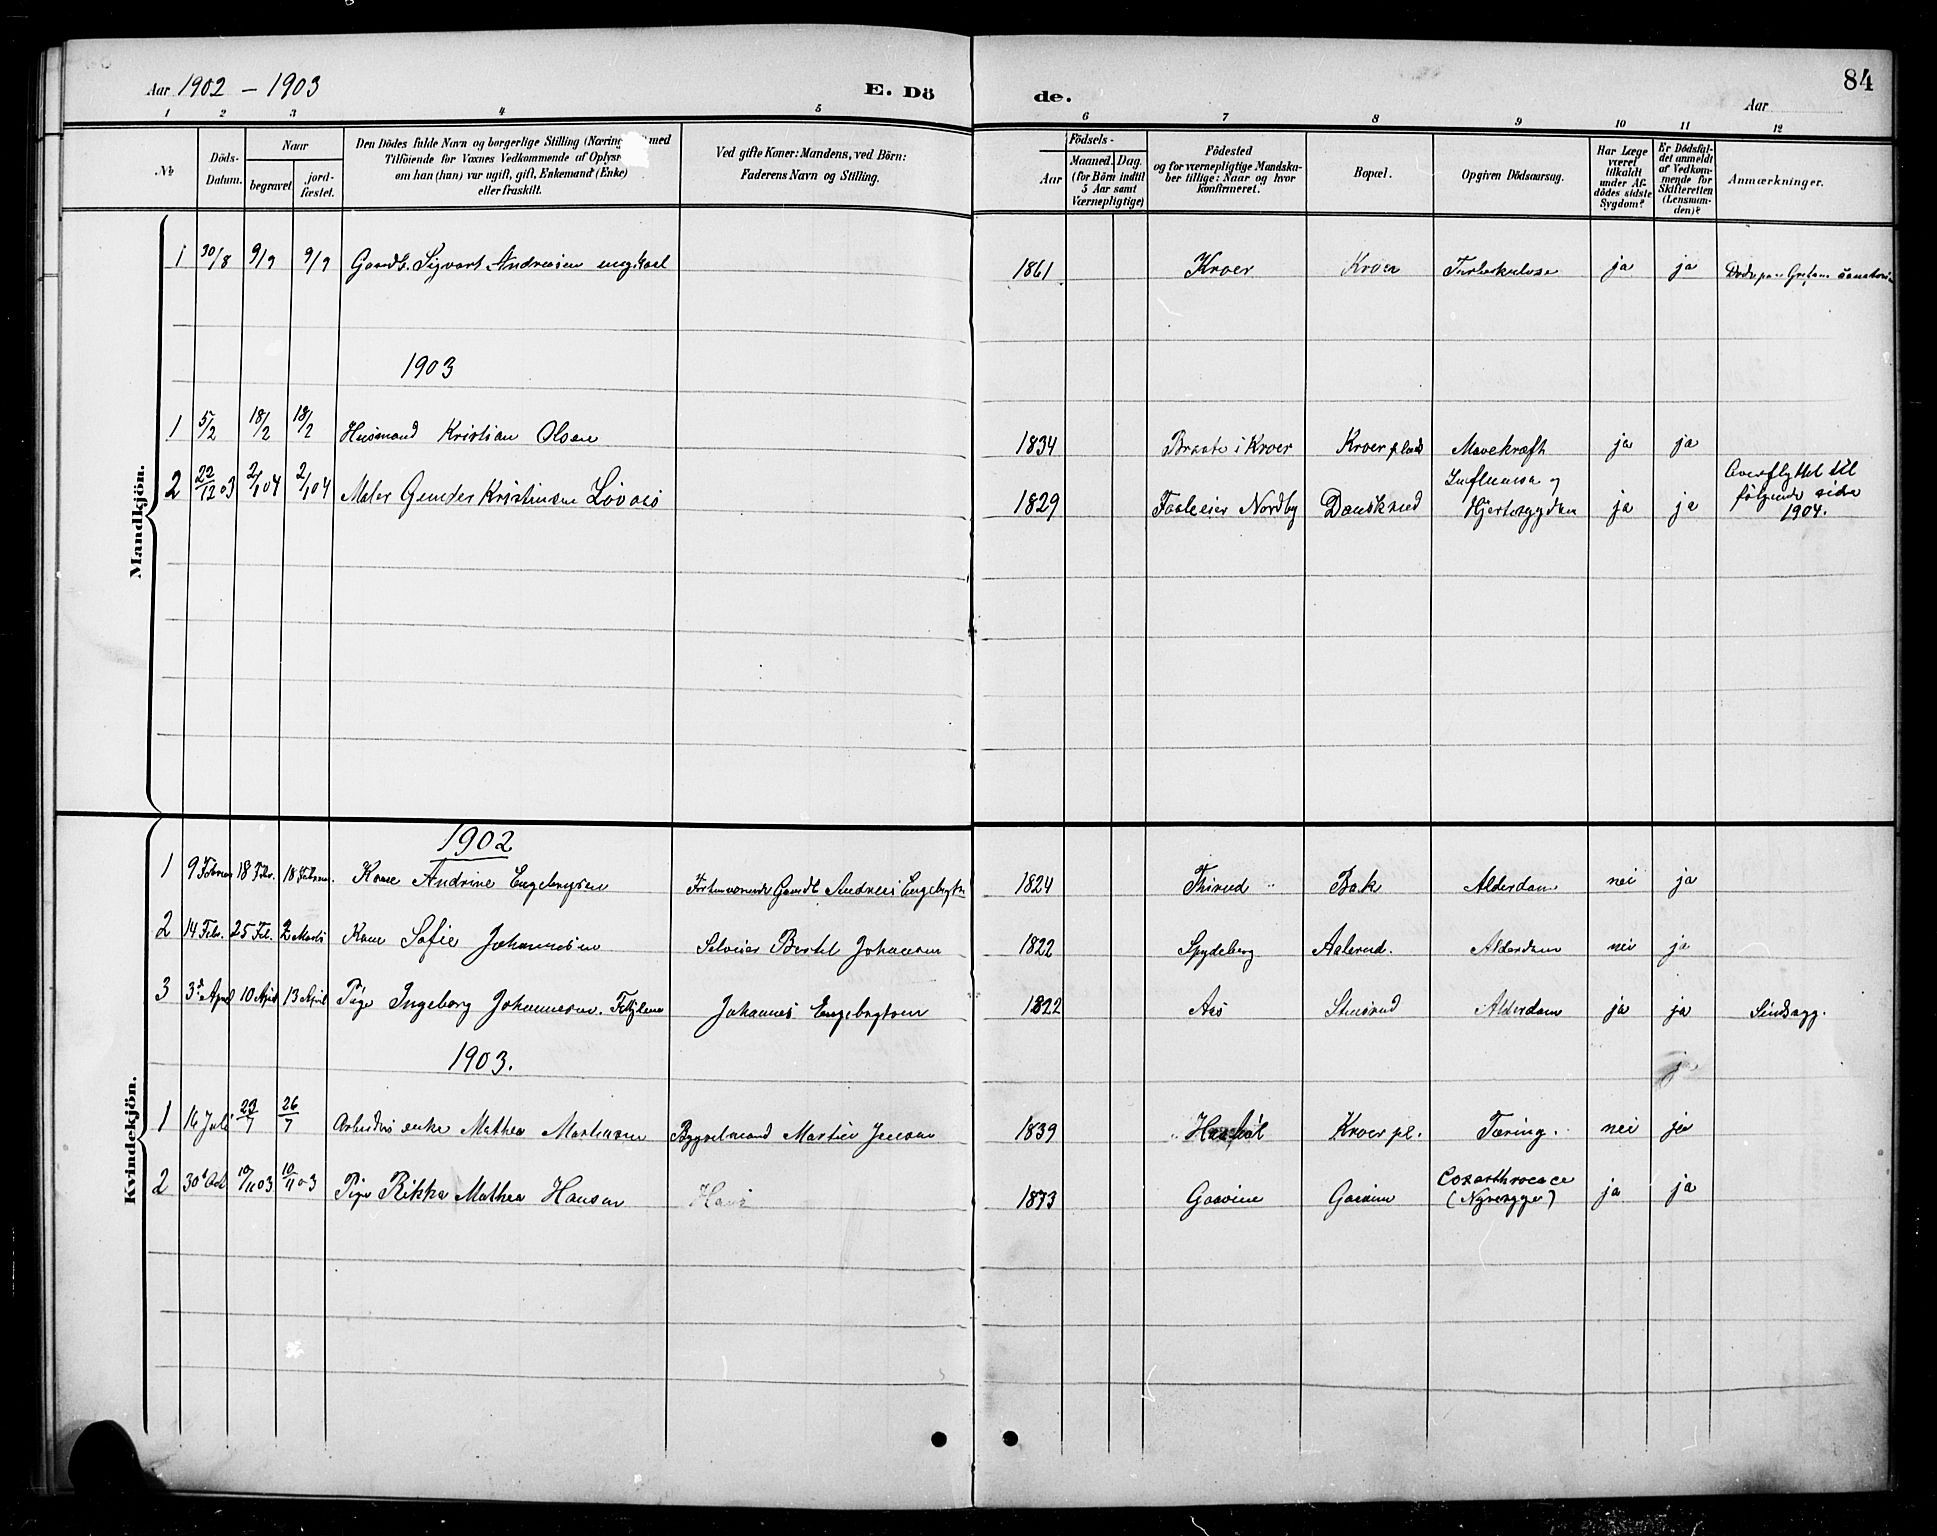 84
Aar 1902 – 1903 E. Dö de. Aar
1 2 3 4 5 6 7 8 9 10 11 12
No
Döds-Datum.
Naar
begravet.
jord-fæstet.
Den Dödes fulde Navn og borgerlige Stilling (Næring med
Tilföiende for Voxnes Vedkommende af Oplysn
om han (hun) var ugift, gift, Enkemand (Enke)
eller fraskilt.
Ved gifte Koner: Mandens, ved Börn:
Faderens Navn og Stilling.
Födsels-
Aar
Maaned. Dag.
(for Börn indtil
5 Aar samt
Værnepligtige)
Födested
og for værnepligtige Mandska-
ber tillige: Naar og hvor
konfirmeret.
Bopæl.
Opgiven Dödsaarsag.
Har Læge
været
tilkaldt
under Af-
dödes sidste
Sygdom?
Er Dödsfal-
det anmeldt
af Vedkom-
mende for
Skifteretten
(Lensman-
den)?
Anmærkninger.
Mandkjön.
1 30/8 9/9 9/9 Gaardb. Sigvart Andreasen 1861 Kroer Kroer Tuberkulose ja ja
1903
1 5/2 18/2 18/2 Husmand Kristian Olsen 1834 Braate i Kroer Kroer plads Mavekræft ja ja
2 22/12 03 2/1 04 2/1 04 Maler Gunder Kristensen Løvaas 1829 Nordby Danskrud Influensa og Hjertesygdom ja ja Overflyttet til
følgende side
1904.
Kvindekjön.
1902
1 9 Februar 18 Febr. 18 Februar. Kone Andrine Engebrgsen Gaardb. Andreas Engebrgtn 1824 Thirud Bak Alderdom nei ja
2 14 Febr. 25 Feb. 2 Marts Kone Sofie Johannesen Selveier Bertel Johansen 1822 Spydeberg Aalerud. Alderdom nei ja
3 3 April 10 April 13 April Pige Ingeborg Johannesen. Johannes Engebregtsen 1822 Aas Stensrud Alderdom ja ja Sindssyg.
1903. ja
1 16 Juli 23/7 26/7 Arbeiders enke Mathea Martinsen Bygselmand Martin Jensen 1839 Kroer pl. Tæring. nei ja
2 30 Oct 10/11 03 10/11 03 Pige Rikka Mathea Hansen Hans 1873 Gaasvine Coxarthrocace
ja ja